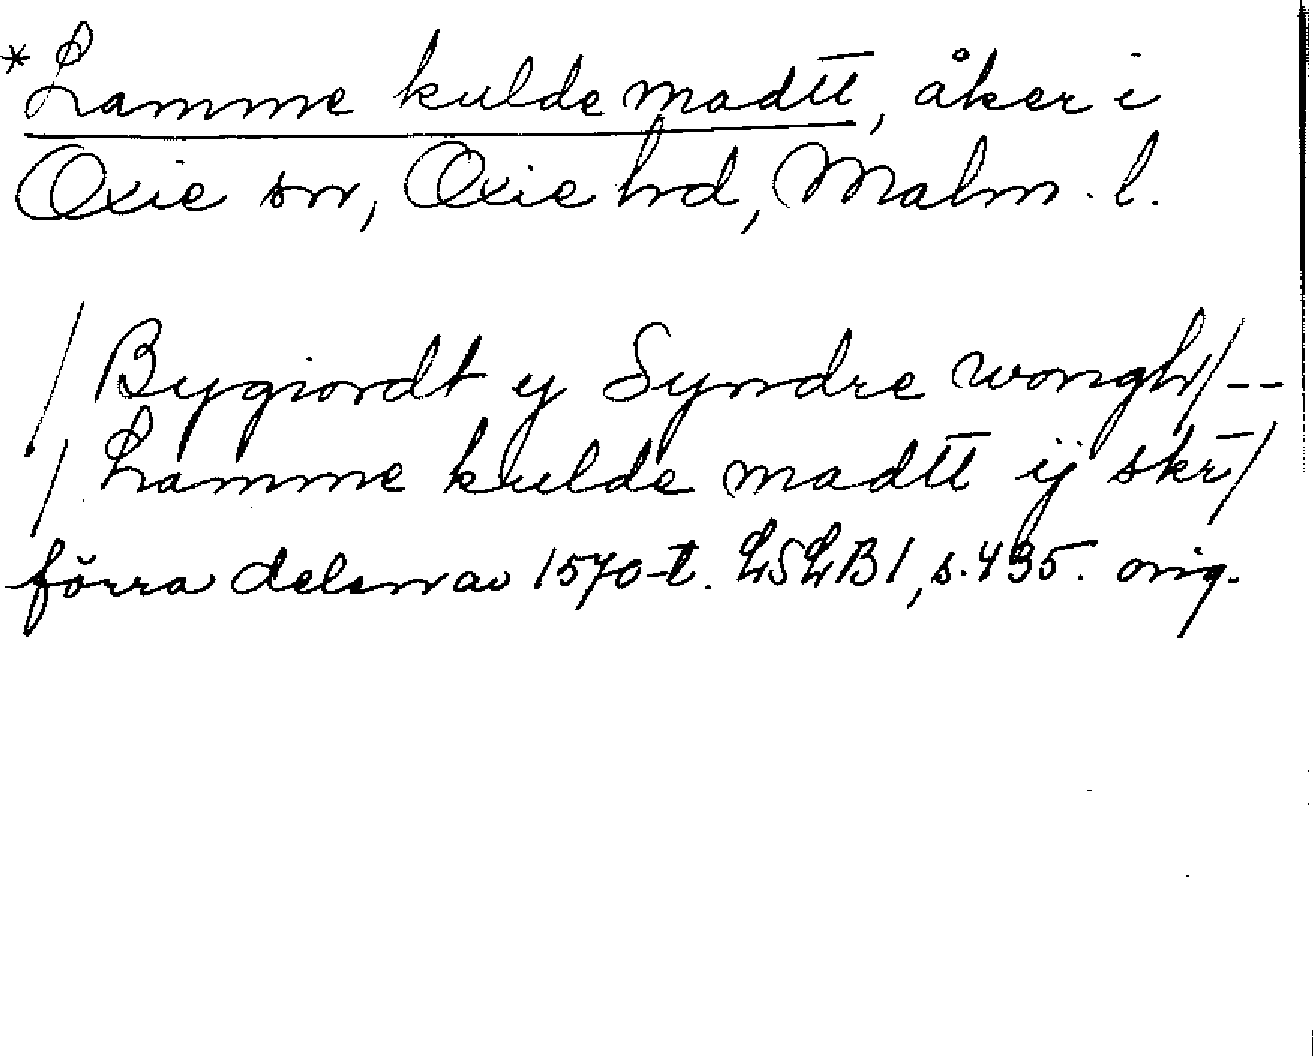 *Lamme kulde madtt, åker i
Oxie sn, Oxie hd, Malm. l.
/Bygiordt y Syndre wongh/--
/Lamme kulde madtt ij skr/
förra delen av 1570-t. LSLB1, s. 435. orig.